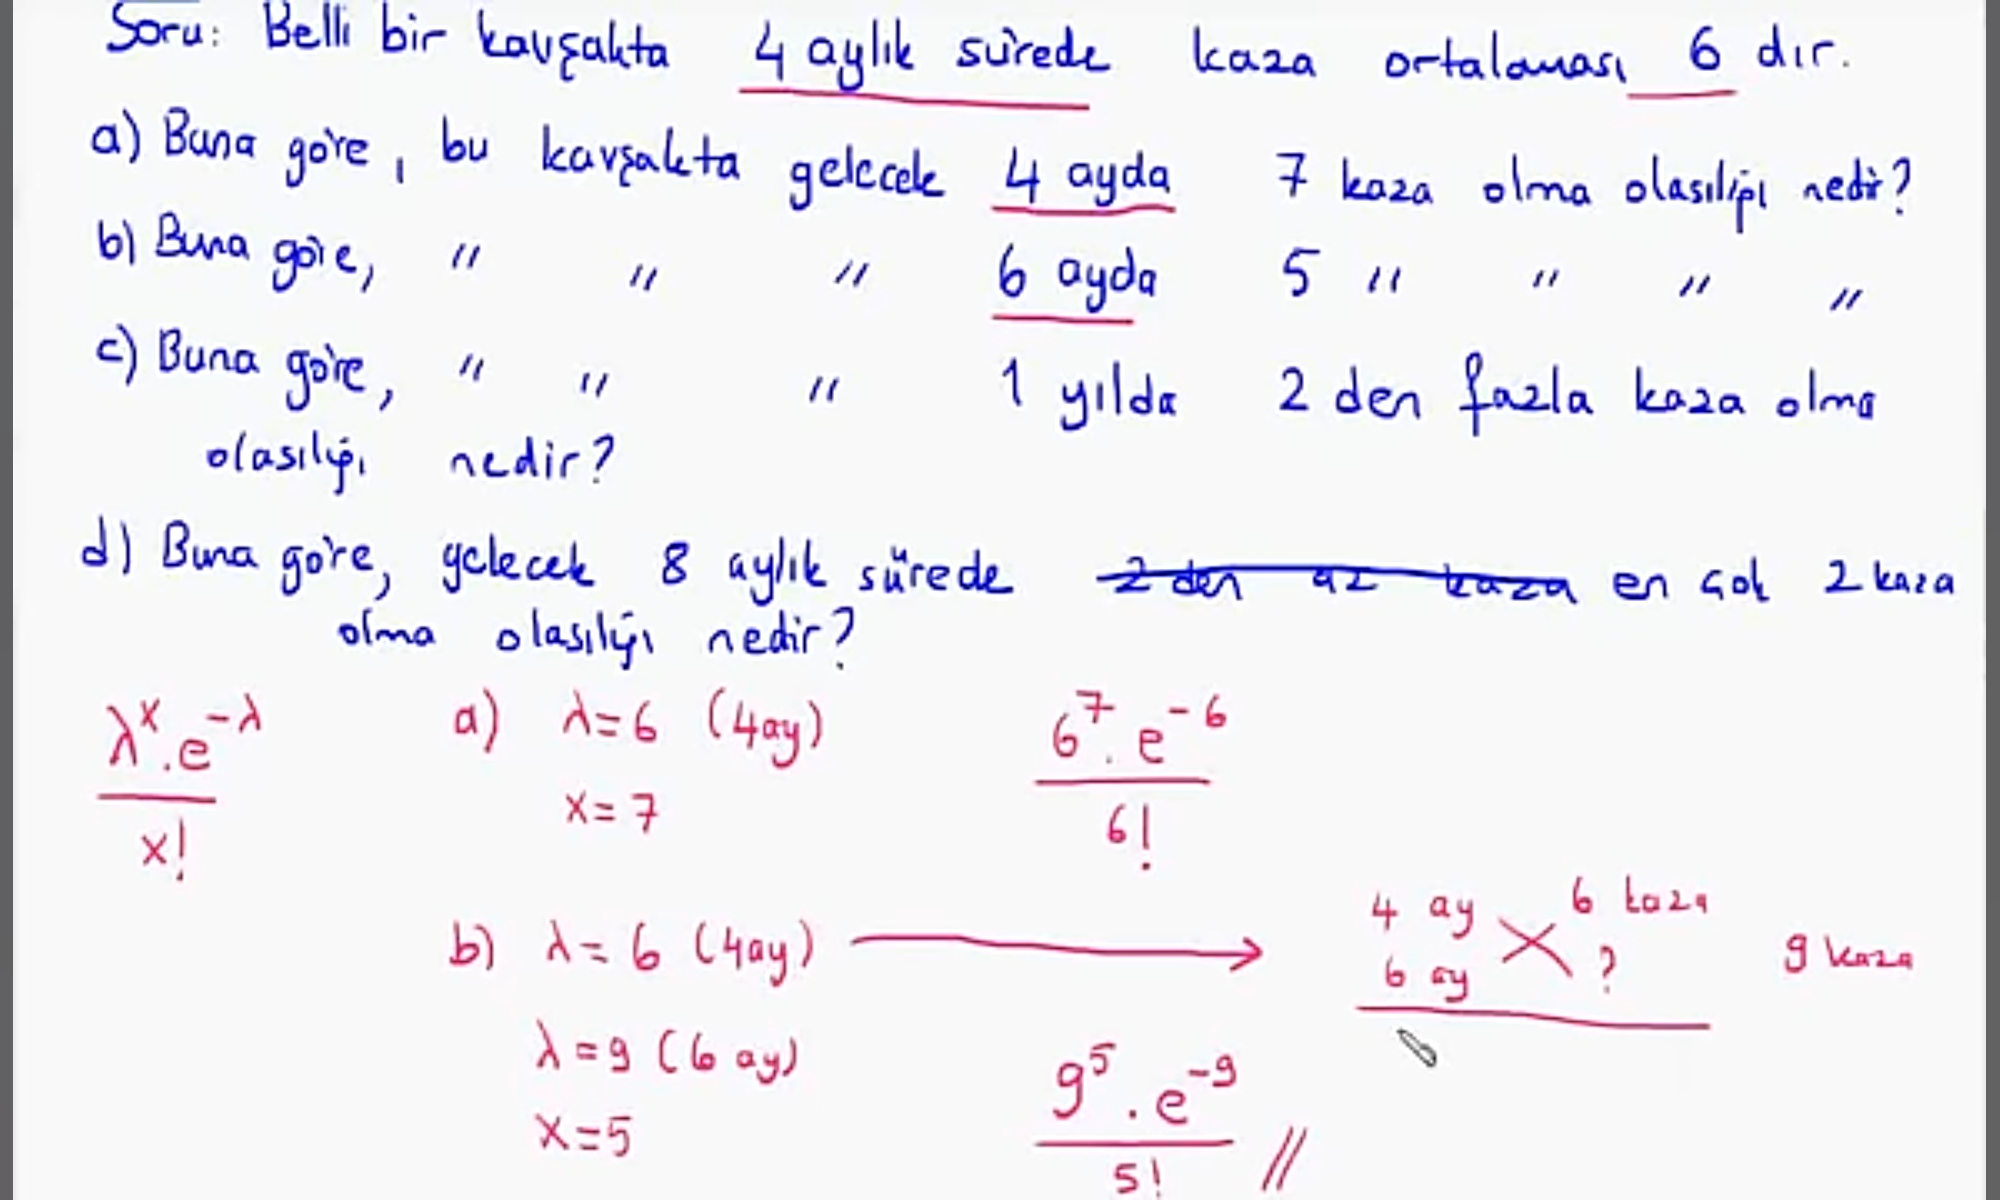 Soru: Belli bir kavşakta 4 aylık sürede kaza ortalaması 6 dır.
a) Buna göre, bu kavşakta gelecek 4 ayda 7 kaza olma olasılığı nedir?
b) Buna göre, " " " 6 ayda 5 " " " "
c) Buna göre, " " " 1 yılda 2 den fazla kaza olma
olasılığı nedir?
d) Buna göre, gelecek 8 aylık sürede 2 den az kaza en çok 2 kaza
olma olasılığı nedir?
λ^x . e^-λ / x!
a) λ=6 (4ay)
x=7
6^7 . e^-6 / 6!
b) λ=6 (4ay) →
4 ay 6 kaza
6 ay ?
9 kaza
λ=9 (6 ay)
x=5
9^5 . e^-9 / 5! //